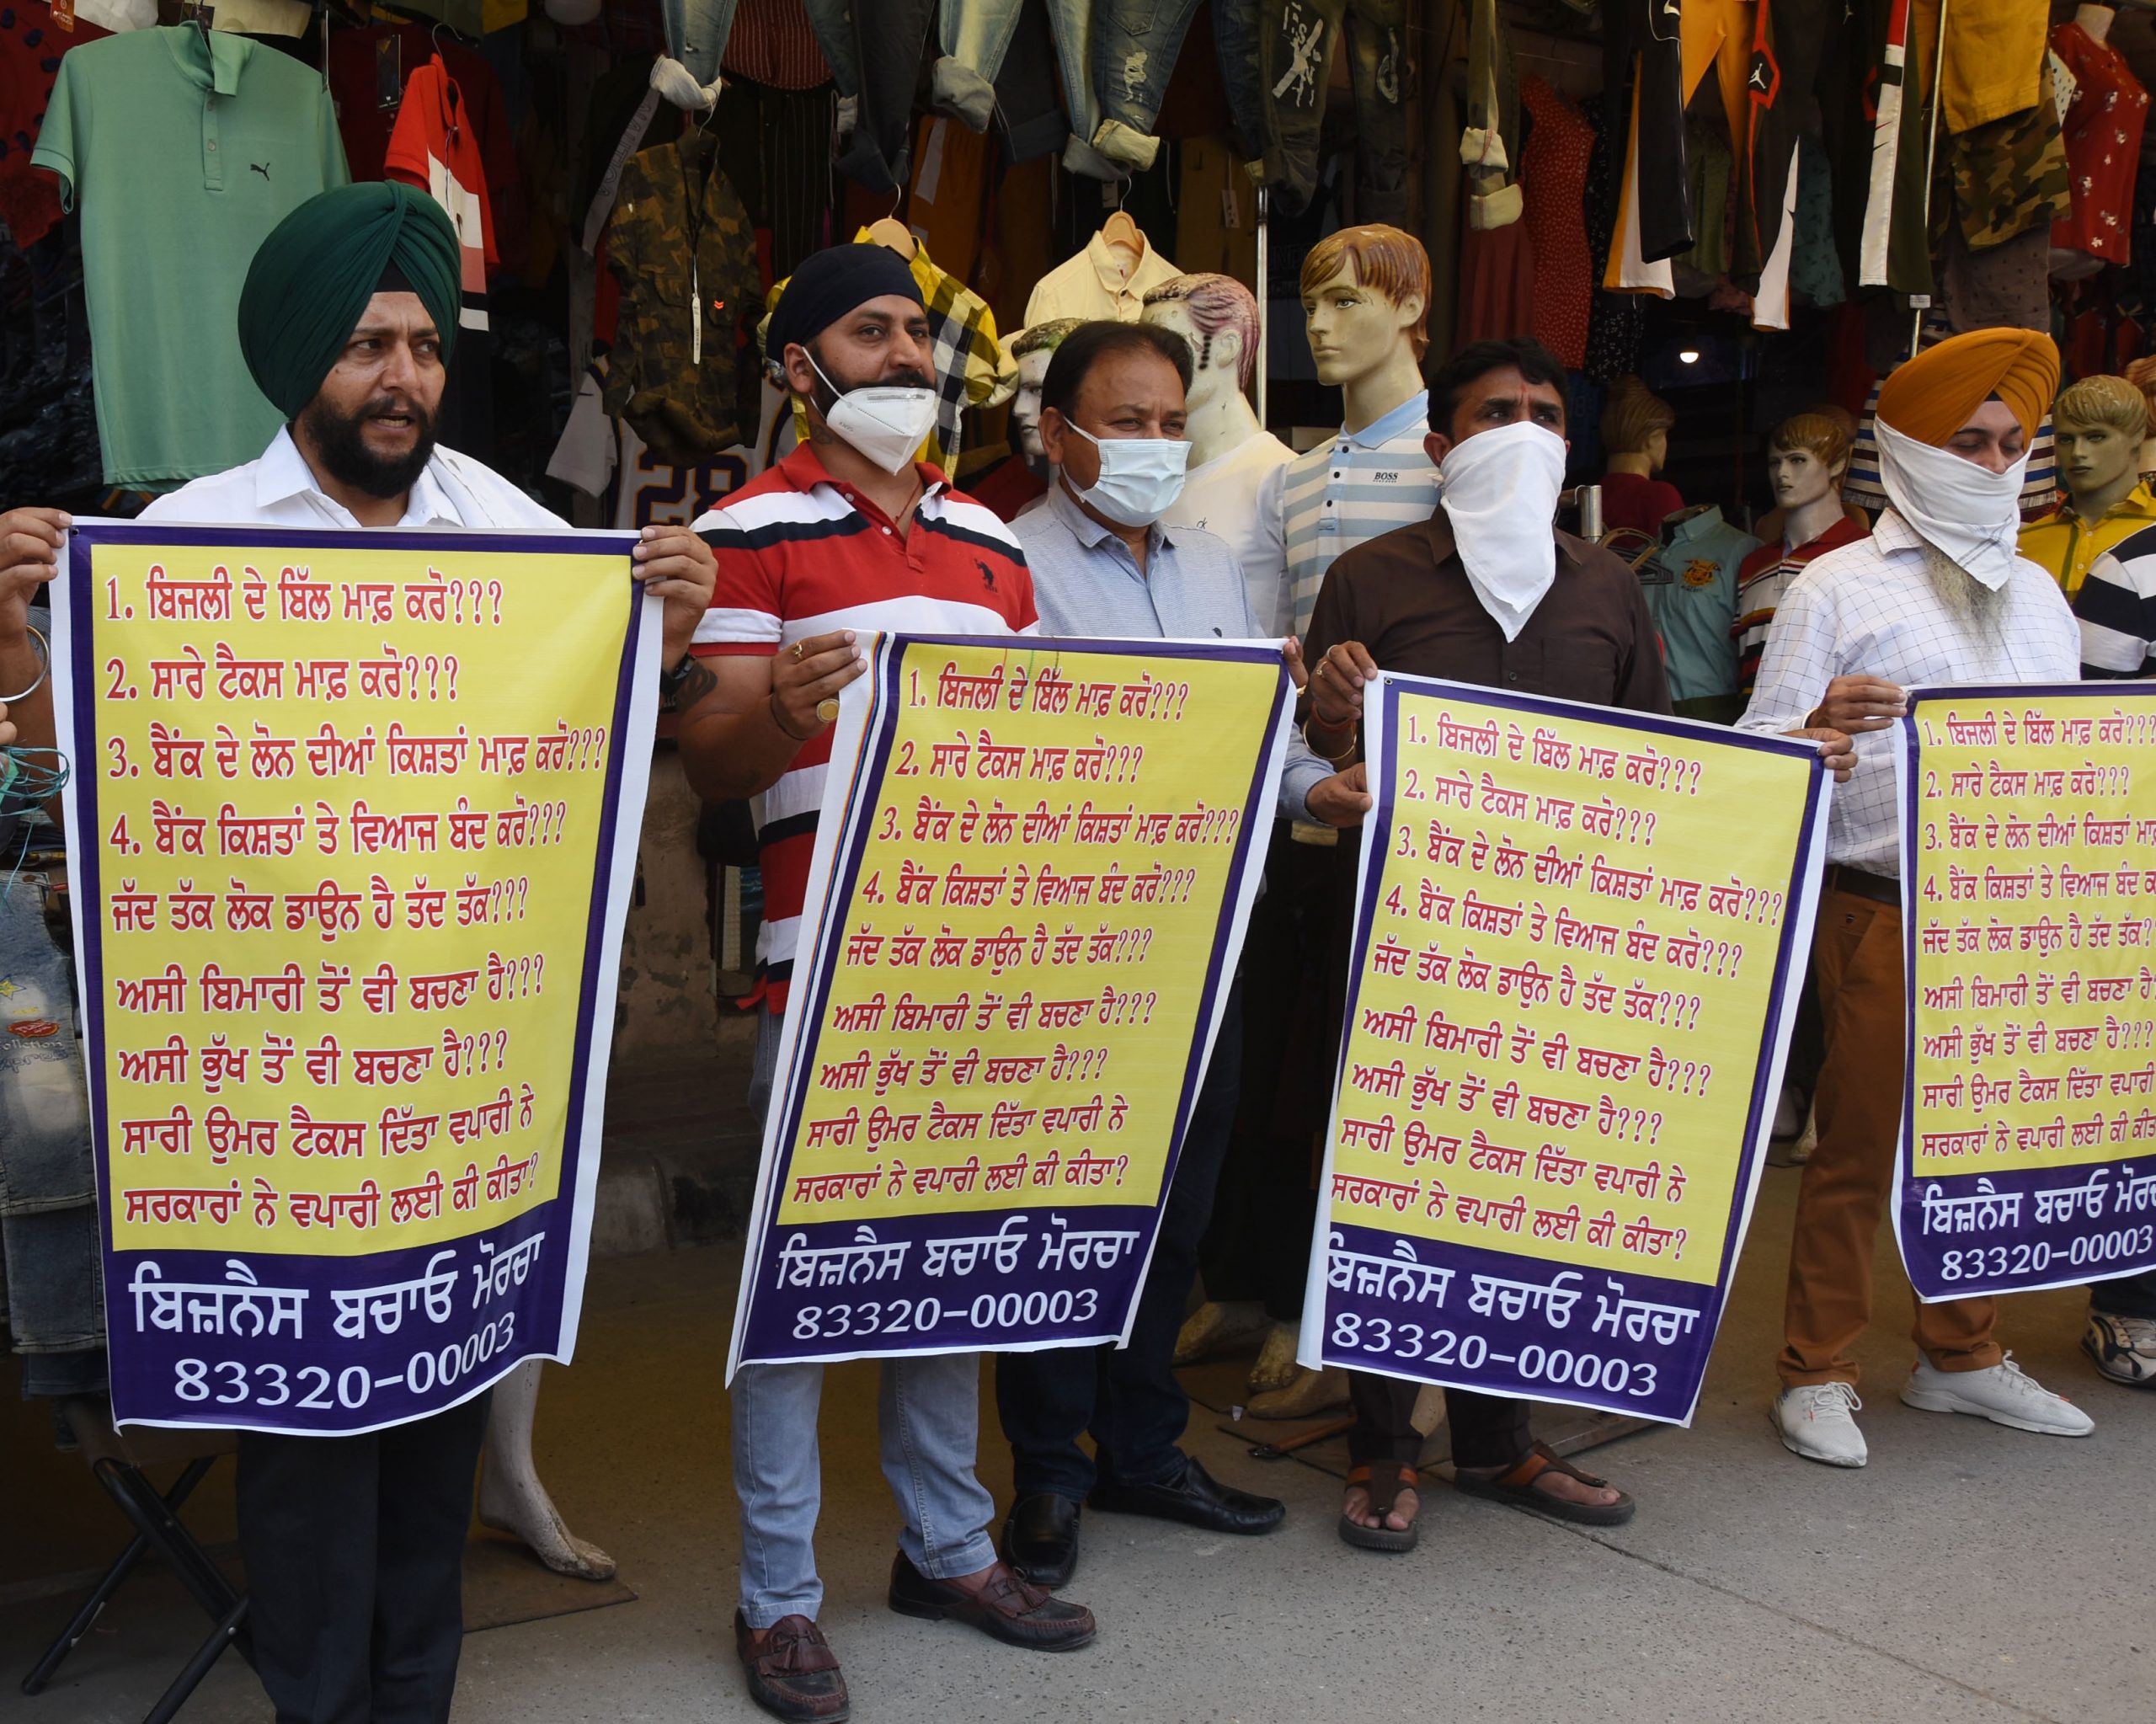 1. ਬਿਜਲੀ ਦੇ ਬਿੱਲ ਮਾਫ਼ ਕਰੋ???
2. ਸਾਰੇ ਟੈਕਸ ਮਾਫ਼ ਕਰੋ???
3. ਬੈਂਕ ਦੇ ਲੋਨ ਦੀਆਂ ਕਿਸ਼ਤਾਂ ਮਾਫ਼ ਕਰੋ???
4. ਬੈਂਕ ਕਿਸ਼ਤਾਂ ਤੇ ਵਿਆਜ ਬੰਦ ਕਰੋ???
ਜੱਦ ਤੱਕ ਲੋਕ ਡਾਊਨ ਹੈ ਤੱਦ ਤੱਕ???
ਅਸੀ ਬਿਮਾਰੀ ਤੋਂ ਵੀ ਬਚਣਾ ਹੈ???
ਅਸੀ ਭੁੱਖ ਤੋਂ ਵੀ ਬਚਣਾ ਹੈ???
ਸਾਰੀ ਉਮਰ ਟੈਕਸ ਦਿੱਤਾ ਵਪਾਰੀ ਨੇ
ਸਰਕਾਰਾਂ ਨੇ ਵਪਾਰੀ ਲਈ ਕੀ ਕੀਤਾ?
ਬਿਜ਼ਨੈਸ ਬਚਾਓ ਮੋਰਚਾ
83320-00003
1. ਬਿਜਲੀ ਦੇ ਬਿੱਲ ਮਾਫ਼ ਕਰੋ???
2. ਸਾਰੇ ਟੈਕਸ ਮਾਫ਼ ਕਰੋ???
3. ਬੈਂਕ ਦੇ ਲੋਨ ਦੀਆਂ ਕਿਸ਼ਤਾਂ ਮਾਫ਼ ਕਰੋ???
4. ਬੈਂਕ ਕਿਸ਼ਤਾਂ ਤੇ ਵਿਆਜ ਬੰਦ ਕਰੋ???
ਜੱਦ ਤੱਕ ਲੋਕ ਡਾਊਨ ਹੈ ਤੱਦ ਤੱਕ???
ਅਸੀ ਬਿਮਾਰੀ ਤੋਂ ਵੀ ਬਚਣਾ ਹੈ???
ਅਸੀ ਭੁੱਖ ਤੋਂ ਵੀ ਬਚਣਾ ਹੈ???
ਸਾਰੀ ਉਮਰ ਟੈਕਸ ਦਿੱਤਾ ਵਪਾਰੀ ਨੇ
ਸਰਕਾਰਾਂ ਨੇ ਵਪਾਰੀ ਲਈ ਕੀ ਕੀਤਾ?
ਬਿਜ਼ਨੈਸ ਬਚਾਓ ਮੋਰਚਾ
83320-00003
1. ਬਿਜਲੀ ਦੇ ਬਿੱਲ ਮਾਫ਼ ਕਰੋ???
2. ਸਾਰੇ ਟੈਕਸ ਮਾਫ਼ ਕਰੋ???
3. ਬੈਂਕ ਦੇ ਲੋਨ ਦੀਆਂ ਕਿਸ਼ਤਾਂ ਮਾਫ਼ ਕਰੋ???
4. ਬੈਂਕ ਕਿਸ਼ਤਾਂ ਤੇ ਵਿਆਜ ਬੰਦ ਕਰੋ???
ਜੱਦ ਤੱਕ ਲੋਕ ਡਾਊਨ ਹੈ ਤੱਦ ਤੱਕ???
ਅਸੀ ਬਿਮਾਰੀ ਤੋਂ ਵੀ ਬਚਣਾ ਹੈ???
ਅਸੀ ਭੁੱਖ ਤੋਂ ਵੀ ਬਚਣਾ ਹੈ???
ਸਾਰੀ ਉਮਰ ਟੈਕਸ ਦਿੱਤਾ ਵਪਾਰੀ ਨੇ
ਸਰਕਾਰਾਂ ਨੇ ਵਪਾਰੀ ਲਈ ਕੀ ਕੀਤਾ?
ਬਿਜ਼ਨੈਸ ਬਚਾਓ ਮੋਰਚਾ
83320-00003
1. ਬਿਜਲੀ ਦੇ ਬਿੱਲ ਮਾਫ਼ ਕਰੋ???
2. ਸਾਰੇ ਟੈਕਸ ਮਾਫ਼ ਕਰੋ???
3. ਬੈਂਕ ਦੇ ਲੋਨ ਦੀਆਂ ਕਿਸ਼ਤਾਂ
4. ਬੈਂਕ ਕਿਸ਼ਤਾਂ ਤੇ ਵਿਆਜ ਬੰਦ
ਜੱਦ ਤੱਕ ਲੋਕ ਡਾਊਨ ਹੈ ਤੱਦ ਤੱਕ?
ਅਸੀ ਬਿਮਾਰੀ ਤੋਂ ਵੀ ਬਚਣਾ ਹੈ?
ਅਸੀ ਭੁੱਖ ਤੋਂ ਵੀ ਬਚਣਾ ਹੈ???
ਸਾਰੀ ਉਮਰ ਟੈਕਸ ਦਿੱਤਾ ਵਪਾਰੀ
ਸਰਕਾਰਾਂ ਨੇ ਵਪਾਰੀ ਲਈ ਕੀ
ਬਿਜ਼ਨੈਸ ਬਚਾਓ
83320-00003
BOSS
28